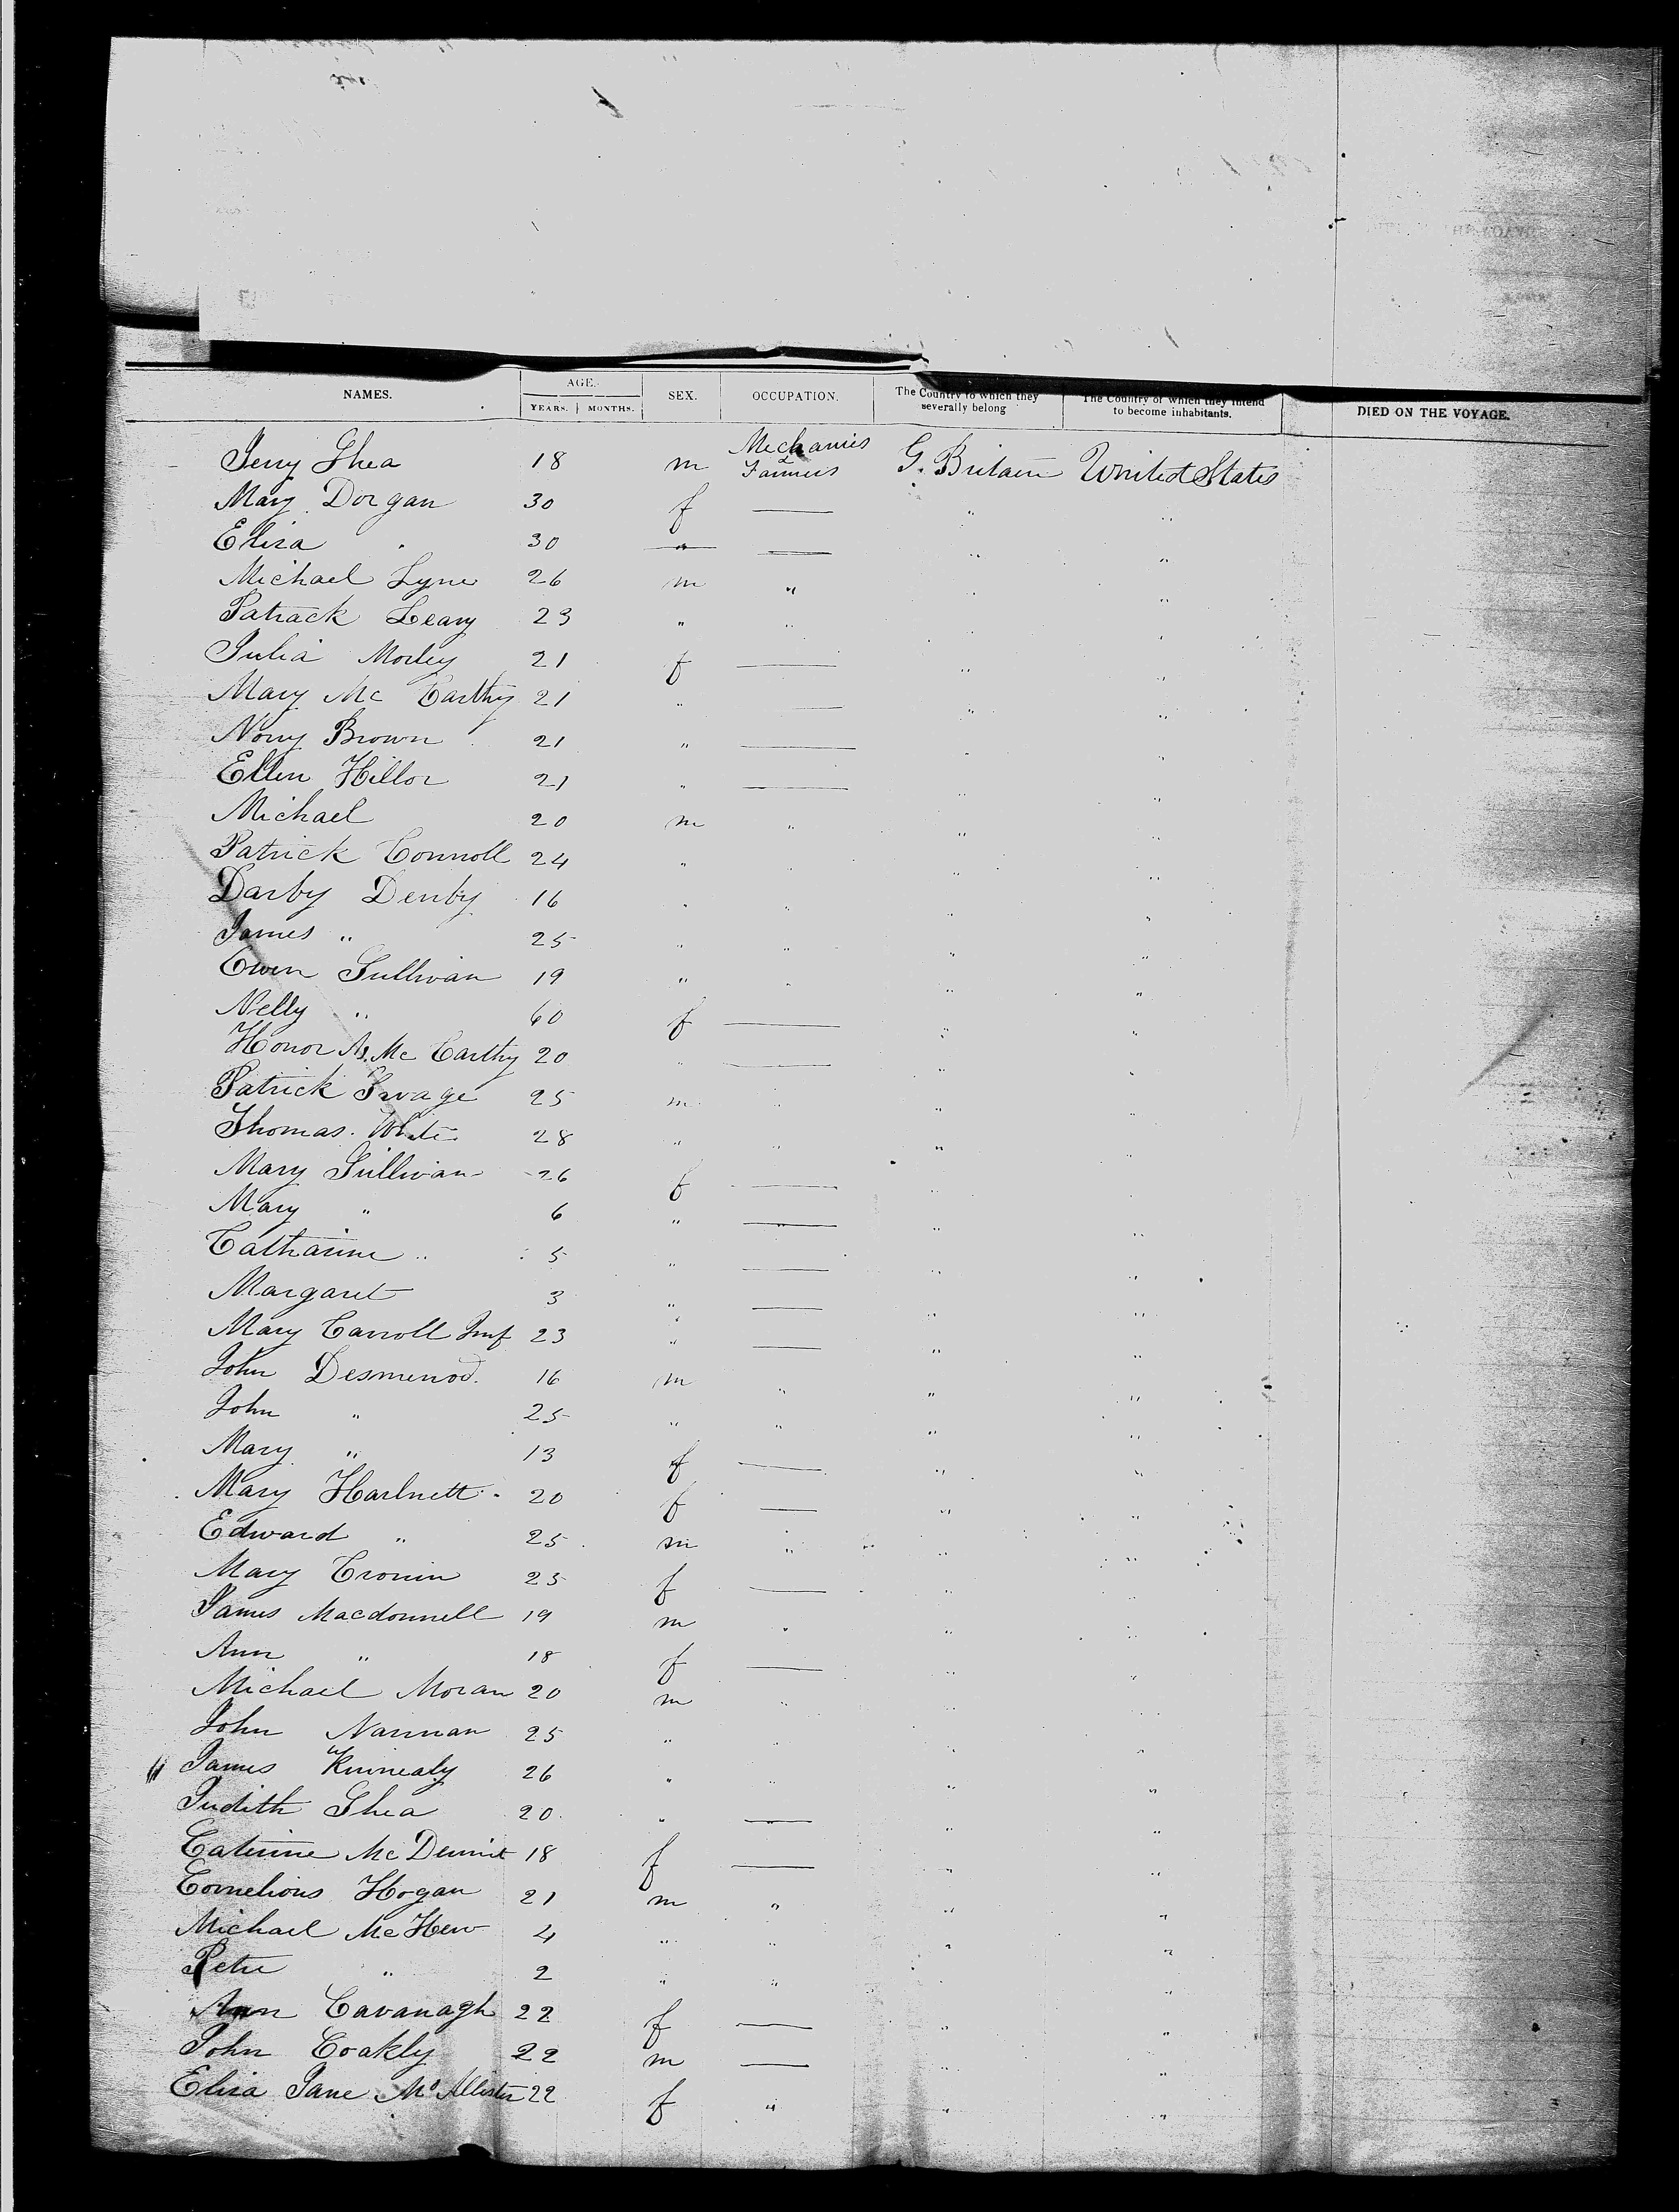 NAMES. AGE. SEX. OCCUPATION. The Country to which they severally belong The Country of which they intend to become inhabitants. DIED ON THE VOYAGE.
YEARS. MONTHS.
Jerry Shea 18 m Mechanics & Farmers G. Britain United States
Mary Dorgan 30 f — " "
Eliza " 30 " — " "
Michael Lyne 26 m " " "
Patrack Leary 23 " " " "
Julia Morley 21 f — " "
Mary Mc Carthy 21 " — " "
Norry Brown 21 " — " "
Ellen Hillor 21 " — " "
Michael 20 m " " "
Patrick Connoll 24 " " " "
Darby Denby 16 " " " "
James " 25 " " " "
Owen Sullivan 19 " " " "
Nelly " 60 f — " "
Honor Mc Carthy 20 " — " "
Patrick Savage 25 m " " "
Thomas White 28 " " " "
Mary Sullivan 26 f — " "
Mary " 6 " — " "
Catharine " 5 " — " "
Margaret 3 " — " "
Mary Carroll Inf 23 " — " "
John Desmenod. 16 m " " "
John " 25 " " " "
Mary " 13 f — " "
Mary Harlnett 20 f — " "
Edward " 25 m " " "
Mary Cronin 25 f — " "
James Macdonnell 19 m " " "
Ann " 18 f — " "
Michael Moran 20 m " " "
John Narinan 25 " " " "
James Kinnealy 26 " " " "
Judith Shea 20 " — " "
Caterine Mc Dermit 18 f — " "
Cornelious Hogan 21 m " " "
Michael Mc Hew 4 " " " "
Peter " 2 " " " "
Ann Cavanagh 22 f — " "
John Coakly 22 m — " "
Eliza Jane McAllister 22 f " " "